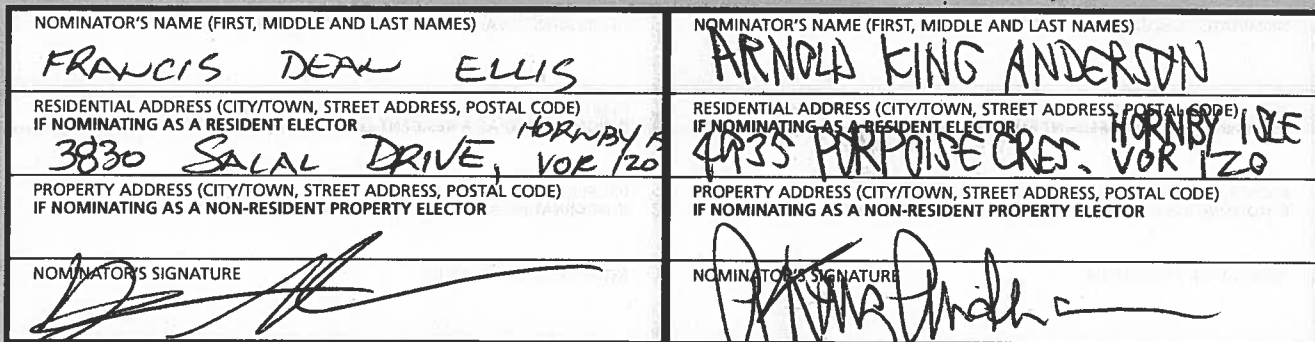 NOMINATOR'S NAME (FIRST, MIDDLE AND LAST NAMES)
FRANCIS DEAN ELLIS
RESIDENTIAL ADDRESS (CITY/TOWN, STREET ADDRESS, POSTAL CODE)
IF NOMINATING AS A RESIDENT ELECTOR
HORNBY
3830 SALAL DRIVE, VOR 1Z0
PROPERTY ADDRESS (CITY/TOWN, STREET ADDRESS, POSTAL CODE)
IF NOMINATING AS A NON-RESIDENT PROPERTY ELECTOR
NOMINATOR'S SIGNATURE
NOMINATOR'S NAME (FIRST, MIDDLE AND LAST NAMES)
ARNOLD KING ANDERSON
RESIDENTIAL ADDRESS (CITY/TOWN, STREET ADDRESS, POSTAL CODE)
IF NOMINATING AS A RESIDENT ELECTOR
HORNBY ISLE
4935 PORPOISE CRES. VOR 1Z0
PROPERTY ADDRESS (CITY/TOWN, STREET ADDRESS, POSTAL CODE)
IF NOMINATING AS A NON-RESIDENT PROPERTY ELECTOR
NOMINATOR'S SIGNATURE